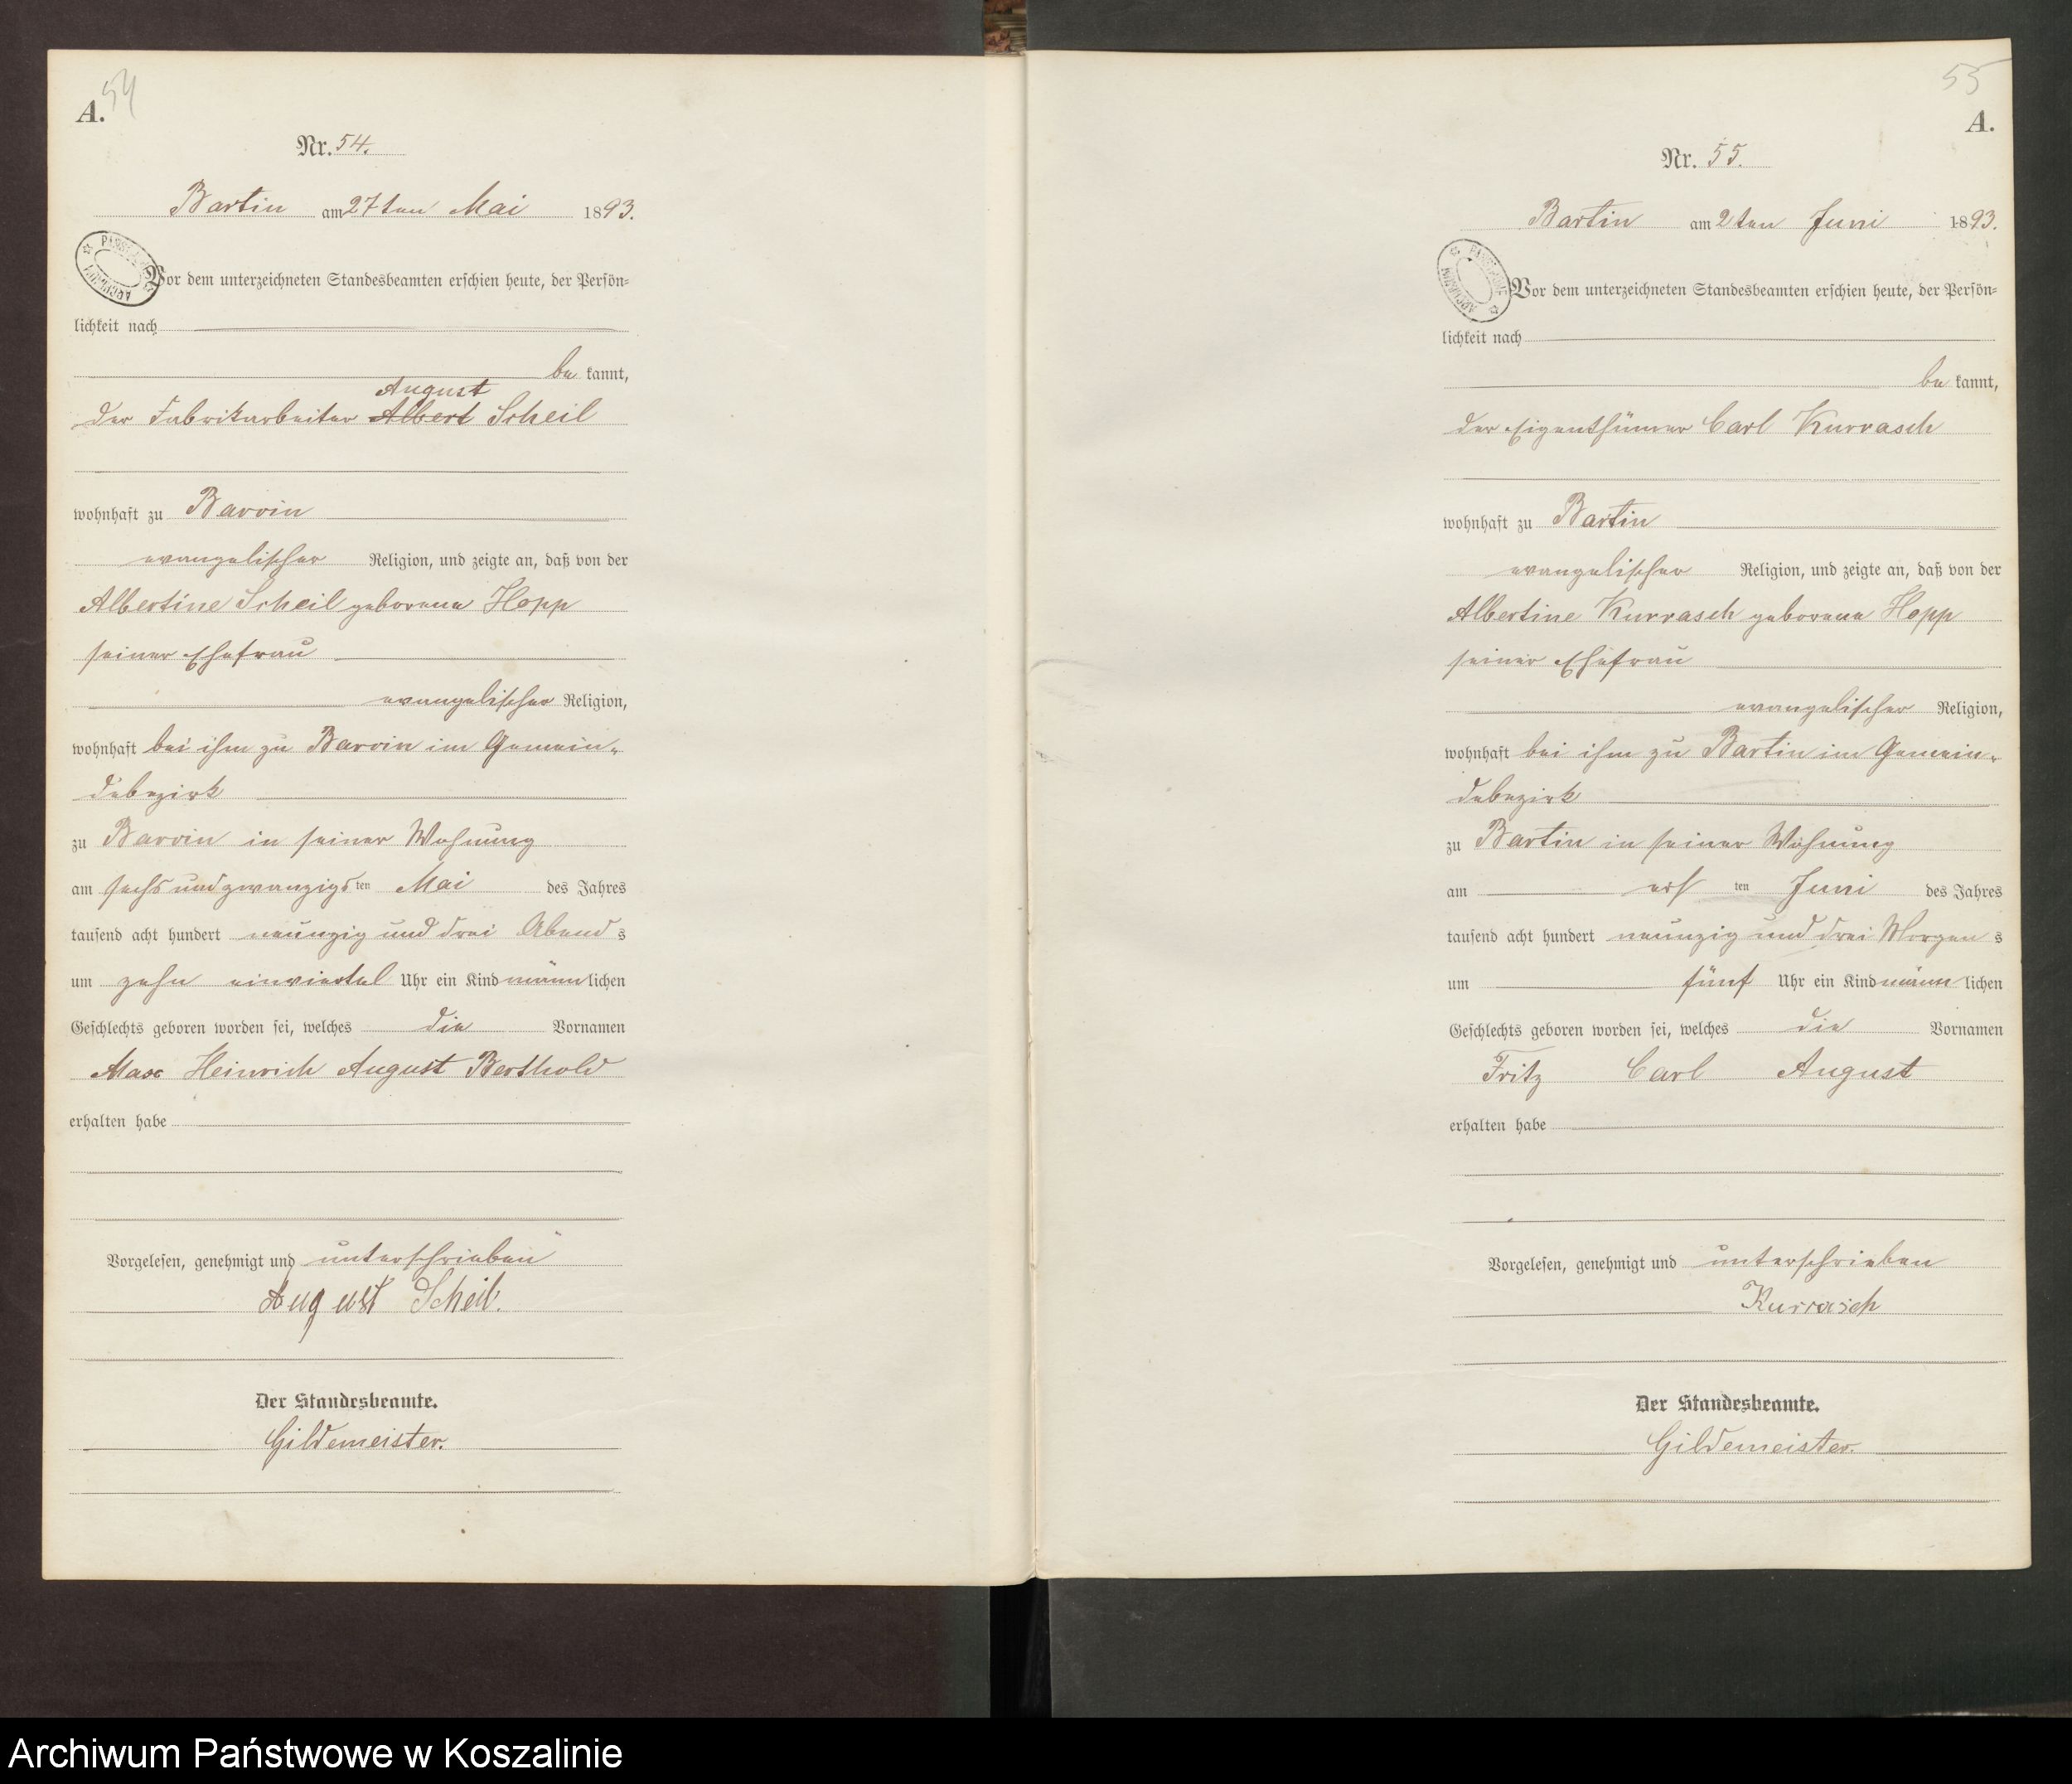 54
A.
Nr. 54.
Bartin am 27ten Mai 1893.
Vor dem unterzeichneten Standesbeamten erschien heute, der Persön-
lichkeit nach
be kannt,
August
der Fabrikarbeiter Albert Scheil
wohnhaft zu Barvin
evangelischer Religion, und zeigte an, daß von der
Albertine Scheil geborene Hopp
seiner Ehefrau
evangelischer Religion,
wohnhaft bei ihm zu Barvin im Gemein-
debezirk
zu Barvin in seiner Wohnung
am sechs und zwanzigsten Mai des Jahres
tausend acht hundert neunzig und drei Abends
um zehn einviertel Uhr ein Kind männlichen
Geschlechts geboren worden sei, welches die Vornamen
Max Heinrich August Berthold
erhalten habe
Vorgelesen, genehmigt und unterschrieben
August Scheil.
Der Standesbeamte.
Gildemeister.
55
A.
Nr. 55.
Bartin am 2ten Juni 1893.
Vor dem unterzeichneten Standesbeamten erschien heute, der Persön-
lichkeit nach
be kannt,
der Eigenthümer Carl Kurrasch
wohnhaft zu Bartin
evangelischer Religion, und zeigte an, daß von der
Albertine Kurrasch geborene Hopp
seiner Ehefrau
evangelischer Religion,
wohnhaft bei ihm zu Bartin im Gemein-
debezirk
zu Bartin in seiner Wohnung
am ersten Juni des Jahres
tausend acht hundert neunzig und drei Morgens
um fünf Uhr ein Kind männlichen
Geschlechts geboren worden sei, welches die Vornamen
Fritz Carl August
erhalten habe
Vorgelesen, genehmigt und unterschrieben
Kurrasch
Der Standesbeamte.
Gildemeister.
Archiwum Państwowe w Koszalinie